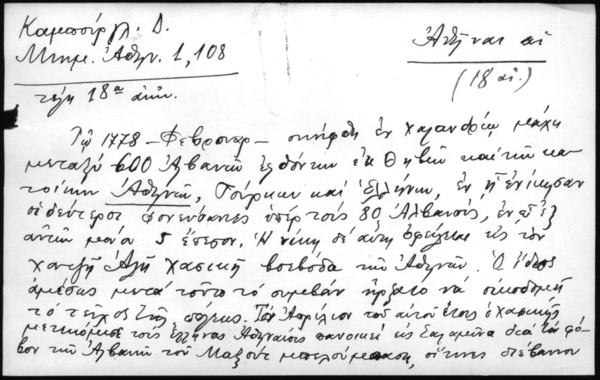 Καμπούργλ. Δ.
Μνημ. Ἀθην. 1, 108
Ἀθῆναι αἱ
(18 αἰ.)
τέλη 18ου αἰών.
Τῷ 1778 – Φεβρουαρ – συνήφθη ἐν Χαλανδρίῳ μάχη
μεταξὺ 600 Ἀλβανῶν ἐλθόντων ἐκ Θηβῶν καὶ τῶν κα-
τοίκων Ἀθηνῶν, Τούρκων καὶ Ἑλλήνων, ἐν ᾗ ἐνίκησαν
οἱ δεύτεροι φονεύσαντες ὑπὲρ τοὺς 80 Ἀλβανούς, ἐν ᾧ ἐξ
αὐτῶν μόνοι 5 ἔπεσον. Ἡ νίκη δὲ αὕτη ὀφείλεται εἰς τὸν
χατζῆ Ἀλῆ Χασεκῆ βοεβόδα τῶν Ἀθηνῶν. Ὁ ἴδιος
ἀμέσως μετὰ τοῦτο τὸ συμβὰν ἤρξατο νὰ οἰκοδομῇ
τὸ τεῖχος τῆς πόλεως. Τὸν Ἀπρίλιον τοῦ αὐτοῦ ἔτους ὁ Χασεκῆς
μετεκόμισε τοὺς Ἕλληνας Ἀθηναίους πανοικεὶ εἰς Σαλαμῖνα διὰ τὸν φό-
βον τῶν Ἀλβανῶν τοῦ Μαξοὺτ μπελούμπαση, οἵτινες διέβαινον